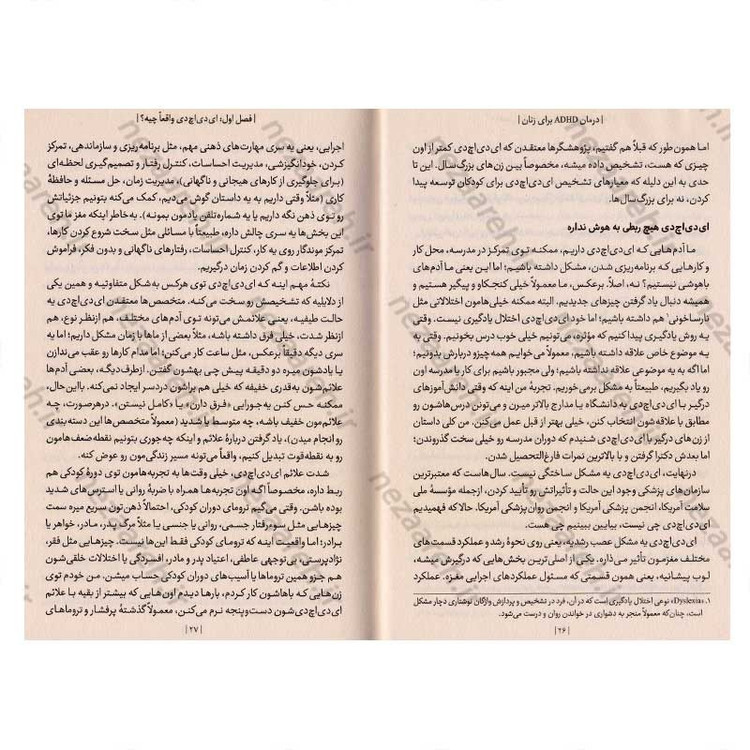 | درمان ADHD برای زنان |
اما همون‌طور که قبلاً هم گفتیم، پژوهشگرها معتقدن که ای‌دی‌اچ‌دی کمتر از اون
چیزی که هست، تشخیص داده میشه، مخصوصاً بین زن‌های بزرگ‌سال. این تا
حدی به این دلیله که معیارهای تشخیص ای‌دی‌اچ‌دی برای کودکان توسعه پیدا
کردن، نه برای بزرگ‌سال‌ها.
ای‌دی‌اچ‌دی هیچ ربطی به هوش نداره
ما آدم‌هایی که ای‌دی‌اچ‌دی داریم، ممکنه توی تمرکز در مدرسه، محل کار
و کارهایی که برنامه‌ریزی شدن، مشکل داشته باشیم؛ اما این یعنی ما آدم‌های
باهوشی نیستیم؟ نه، اصلاً. برعکس، ما معمولاً خیلی کنجکاو و پیگیر هستیم و
همیشه دنبال یاد گرفتن چیزهای جدیدیم. البته ممکنه خیلی‌هامون اختلالاتی مثل
نارساخوانی¹ هم داشته باشیم؛ اما خود ای‌دی‌اچ‌دی اختلال یادگیری نیست. وقتی
یه روش یادگیری پیدا کنیم که مؤثره، می‌تونیم خیلی خوب درس بخونیم. وقتی به
یه موضوع خاص علاقه داشته باشیم، معمولاً می‌خوایم همه‌چیزو درباره‌ش بدونیم؛
اما اگه به یه موضوعی علاقه نداشته باشیم؛ ولی مجبور باشیم برای کار یا مدرسه اون
رو یاد بگیریم، طبیعتاً به مشکل برمی‌خوریم. تجربهٔ من اینه که وقتی دانش‌آموزهای
درگیر با ای‌دی‌اچ‌دی به دانشگاه یا مدارج بالاتر میرن و می‌تونن درس‌هاشون رو
مطابق با علاقه‌شون انتخاب کنن، خیلی بهتر از قبل عمل می‌کنن. من کلی داستان
از زن‌های درگیر با ای‌دی‌اچ‌دی شنیدم که دوران مدرسه رو خیلی سخت گذروندن؛
اما بعدش دکترا گرفتن و با بالاترین نمرات فارغ‌التحصیل شدن.
درنهایت، ای‌دی‌اچ‌دی یه مشکل ساختگی نیست. سال‌هاست که معتبرترین
سازمان‌های پزشکی وجود این حالت و تأثیراتش رو تأیید کردن، ازجمله مؤسسهٔ ملی
سلامت آمریکا، انجمن پزشکی آمریکا و انجمن روان‌پزشکی آمریکا. حالا که فهمیدیم
ای‌دی‌اچ‌دی چی نیست، بیایین ببینیم چی هست.
ای‌دی‌اچ‌دی یه مشکل عصب رشدیه، یعنی روی نحوهٔ رشد و عملکرد قسمت‌های
مختلف مغزمون تأثیر می‌ذاره. یکی از اصلی‌ترین بخش‌هایی که درگیرش میشه،
لوب پیشانیه، یعنی همون قسمتی که مسئول عملکردهای اجرایی مغزه. عملکرد
۱. «Dyslexia» نوعی اختلال یادگیری است که در آن، فرد در تشخیص و پردازش واژگان نوشتاری دچار مشکل
است، چنان‌که معمولاً منجر به دشواری در خواندن روان و درست می‌شود.
| ۲۶ |
| فصل اول: ای‌دی‌اچ‌دی واقعاً چیه؟ |
اجرایی، یعنی یه سری مهارت‌های ذهنی مهم، مثل برنامه‌ریزی و سازماندهی، تمرکز
کردن، خودانگیزشی، مدیریت احساسات، کنترل رفتار و تصمیم‌گیری لحظه‌ای
(برای جلوگیری از کارهای هیجانی و ناگهانی)، مدیریت زمان، حل مسئله و حافظهٔ
کاری (مثلاً وقتی داریم به یه داستان گوش می‌دیم، کمک می‌کنه بتونیم جزئیاتش
رو توی ذهن نگه داریم یا یه شماره‌تلفن یادمون بمونه). به‌خاطر اینکه مغز ما توی
این بخش‌ها یه سری چالش داره، طبیعتاً با مسائلی مثل سخت شروع کردن کارها،
تمرکز موندگار روی یه کار، کنترل احساسات، رفتارهای ناگهانی و بدون فکر، فراموش
کردن اطلاعات و گم کردن زمان درگیریم.
نکتهٔ مهم اینه که ای‌دی‌اچ‌دی توی هرکس به‌شکل متفاوتیه و همین یکی
از دلایلیه که تشخیصش رو سخت می‌کنه. متخصص‌ها معتقدن ای‌دی‌اچ‌دی یه
حالت طیفیه، یعنی علائمش می‌تونه توی آدم‌های مختلف، هم ازنظر نوع، هم
ازنظر شدت، خیلی فرق داشته باشه، مثلاً بعضی از ماها با زمان مشکل داریم؛ اما یه
سری دیگه دقیقاً برعکس، مثل ساعت کار می‌کنن؛ اما مدام کارها رو عقب می‌ندازن
یا یادشون میره دو دقیقه پیش چی بهشون گفتن. ازطرف‌دیگه، بعضی آدم‌ها
علائمشون به‌قدری خفیفه که خیلی هم براشون دردسر ایجاد نمی‌کنه. بااین‌حال،
ممکنه حس کنن یه‌جورایی «فرق دارن» یا «کامل نیستن». درهرصورت، چه
علائم‌مون خفیف باشه، چه متوسط یا شدید (معمولاً متخصص‌ها این دسته‌بندی
رو انجام میدن)، یاد گرفتن دربارهٔ علائم و اینکه چه‌جوری بتونیم نقطه‌ضعف‌هامون
رو به نقطه‌قوت تبدیل کنیم، واقعاً می‌تونه مسیر زندگی‌مون رو عوض کنه.
شدت علائم ای‌دی‌اچ‌دی، خیلی وقت‌ها به تجربه‌هامون توی دورهٔ کودکی هم
ربط داره، مخصوصاً اگه اون تجربه‌ها همراه با ضربهٔ روانی یا استرس‌های شدید
بوده باشن. وقتی می‌گیم ترومای دوران کودکی، احتمالاً ذهن‌تون سریع میره سمت
چیزهایی مثل سوءرفتار جسمی، روانی یا جنسی یا مثلاً مرگ پدر، مادر، خواهر یا
برادر؛ اما واقعیت اینه که ترومای کودکی فقط این‌ها نیست. چیزهایی مثل فقر،
نژادپرستی، بی‌توجهی عاطفی، اعتیاد پدر و مادر، افسردگی یا اختلالات خلقی‌شون
هم جزو همین تروماها یا آسیب‌های دوران کودکی حساب میشن. من خودم توی
زن‌هایی که باهاشون کار کردم، بارها دیدم اون‌هایی که بیشتر از بقیه با علائم
ای‌دی‌اچ‌دی‌شون دست‌وپنجه نرم می‌کنن، معمولاً گذشتهٔ پرفشار و تروماهای
| ۲۷ |
nezaareh.ir